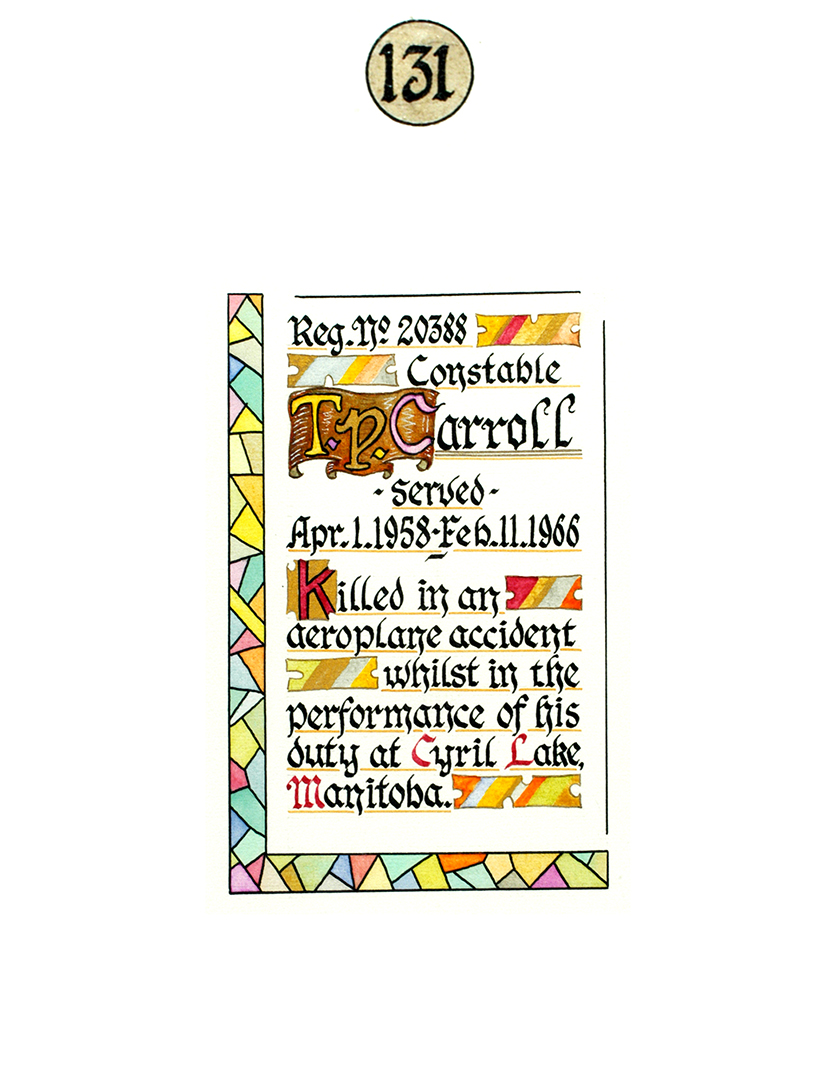 131
Reg. No 20388
Constable
T.P. Carroll
- Served -
Apr. 1. 1958 - Feb. 11. 1966
Killed in an
aeroplane accident
whilst in the
performance of his
duty at Cyril Lake,
Manitoba.